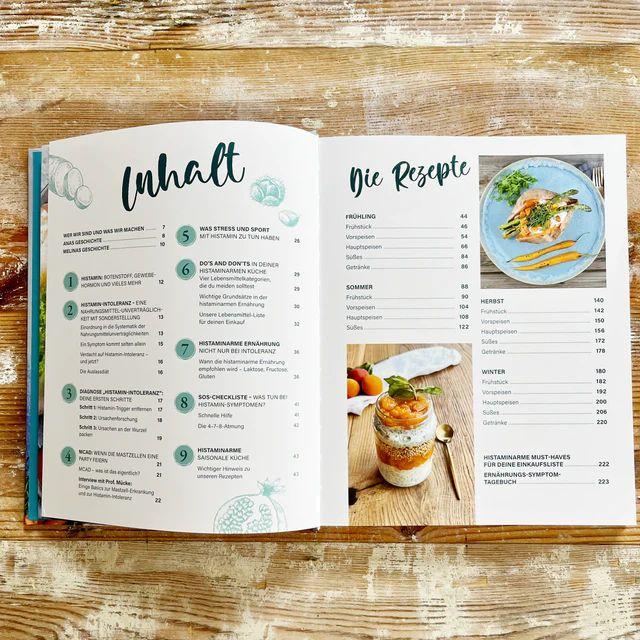 Inhalt
WER WIR SIND UND WAS WIR MACHEN 7
ANAS GESCHICHTE 8
MELINAS GESCHICHTE 10
1 HISTAMIN: BOTENSTOFF, GEWEBE-
HORMON UND VIELES MEHR 12
2 HISTAMIN-INTOLERANZ – EINE
NAHRUNGSMITTEL-UNVERTRÄGLICH-
KEIT MIT SONDERSTELLUNG 13
Einordnung in die Systematik der
Nahrungsmittelunverträglichkeiten 13
Ein Symptom kommt selten allein 15
Verdacht auf Histamin-Intoleranz –
und jetzt? 16
Die Auslassdiät 16
3 DIAGNOSE „HISTAMIN-INTOLERANZ“:
DEINE ERSTEN SCHRITTE 17
Schritt 1: Histamin-Trigger entfernen 17
Schritt 2: Ursachenforschung 18
Schritt 3: Ursachen an der Wurzel
packen 19
4 MCAD: WENN DIE MASTZELLEN EINE
PARTY FEIERN 21
MCAD – was ist das eigentlich? 21
Interview mit Prof. Mücke:
Einige Basics zur Mastzell-Erkrankung
und zur Histamin-Intoleranz 22
5 WAS STRESS UND SPORT
MIT HISTAMIN ZU TUN HABEN 26
6 DO'S AND DON'TS IN DEINER
HISTAMINARMEN KÜCHE 29
Vier Lebensmittelkategorien,
die du meiden solltest 29
Wichtige Grundsätze in der
histaminarmen Ernährung 30
Unsere Lebensmittel-Liste
für deinen Einkauf 32
7 HISTAMINARME ERNÄHRUNG
NICHT NUR BEI INTOLERANZ 36
Wann die histaminarme Ernährung
empfohlen wird – Laktose, Fructose,
Gluten 36
8 SOS-CHECKLISTE – WAS TUN BEI
HISTAMIN-SYMPTOMEN? 41
Schnelle Hilfe 41
Die 4-7-8-Atmung 42
9 HISTAMINARME
SAISONALE KÜCHE 43
Wichtiger Hinweis zu
unseren Rezepten 43
Die Rezepte
FRÜHLING 44
Frühstück 46
Vorspeisen 54
Hauptspeisen 66
Süßes 84
Getränke 86
SOMMER 88
Frühstück 90
Vorspeisen 104
Hauptspeisen 108
Süßes 122
HERBST 140
Frühstück 142
Vorspeisen 150
Hauptspeisen 156
Süßes 172
Getränke 178
WINTER 180
Frühstück 182
Vorspeisen
Hauptspeisen 200
Süßes 206
Getränke 220
HISTAMINARME MUST-HAVES
FÜR DEINE EINKAUFSLISTE 222
ERNÄHRUNGS-SYMPTOM-
TAGEBUCH 223